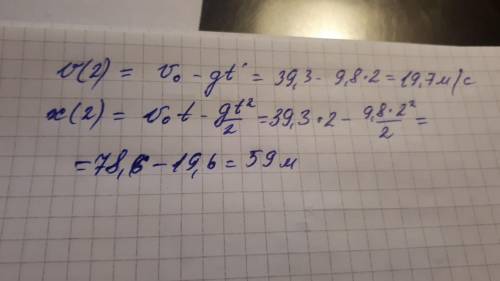 v(2) = v₀ - gt = 39,3 - 9,8·2 = 19,7 м/с
x(2) = v₀t - gt²/2 = 39,3·2 - 9,8·2²/2 =
= 78,6 - 19,6 = 59 м